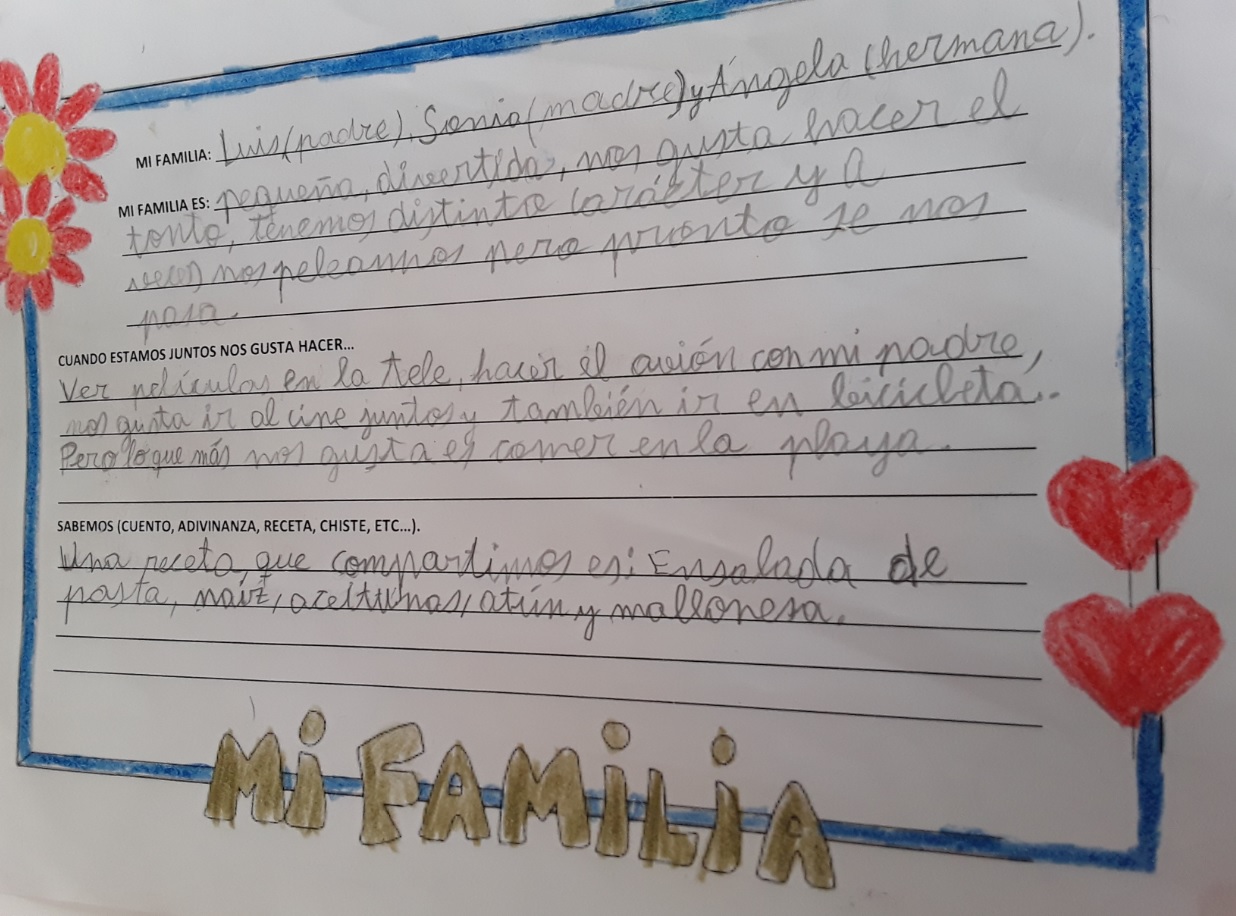 MI FAMILIA: Luis(padre), Sonia(madre) y Ángela (hermana).
MI FAMILIA ES: pequeña, divertida, nos gusta hacer el
tonto, tenemos distinto carácter y a
veces nos peleamos pero pronto se nos
pasa.
CUANDO ESTAMOS JUNTOS NOS GUSTA HACER...
Ver películas en la tele, hacer el avión con mi padre,
nos gusta ir al cine juntos y también ir en bicicleta..
Pero lo que más nos gusta es comer en la playa.
SABEMOS (CUENTO, ADIVINANZA, RECETA, CHISTE, ETC...).
Una receta que compartimos es: Ensalada de
pasta, maíz, aceitunas, atún y mallonesa.
Mi FAMiLiA